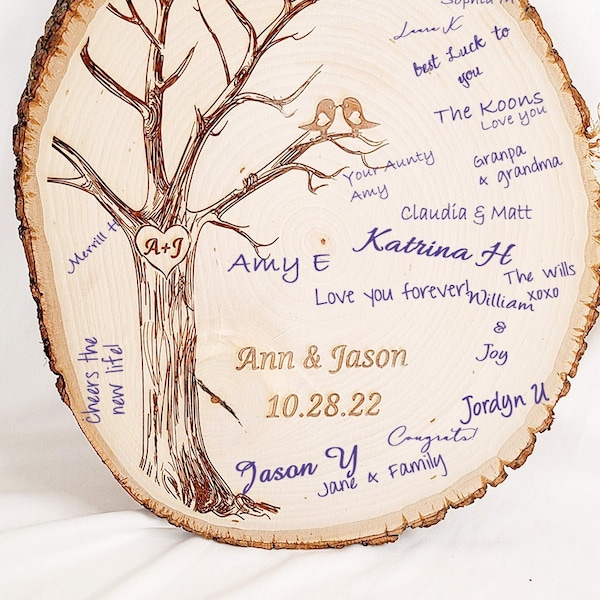 Sophia M
Laura K
best Luck to
you
The Koons
Love you
Granpa
& grandma
Your Aunty
Amy
Claudia & Matt
Merrill H
A+J
Katrina H
Amy E
The Wills
xoxo
Love you forever!
William
&
Joy
Cheers the
new life!
Ann & Jason
10.28.22
Jordyn U
Congrats!
Jason Y
Jane & Family